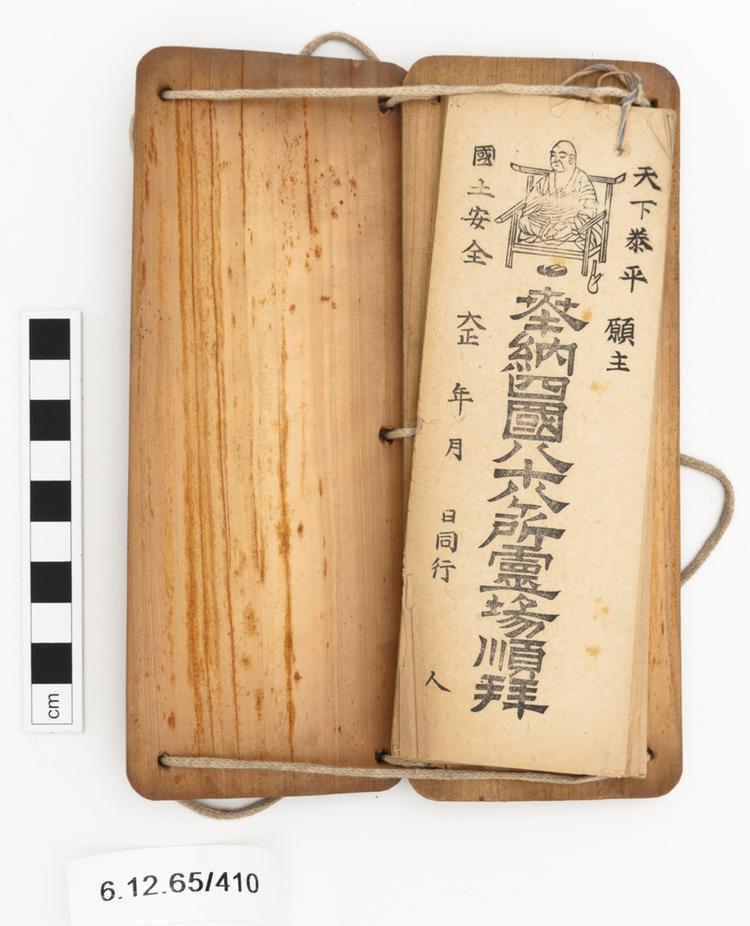 天下泰平 願主
奉納四國八十八ヶ所靈場順拜
國土安全 大正 年 月 日同行 人
cm
6.12.65/410